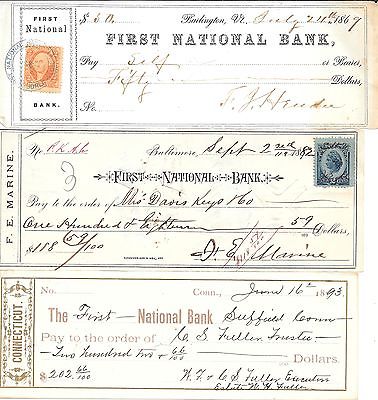 FIRST
National
BANK.
$50. Burlington, Vt. July 24th 1869
FIRST NATIONAL BANK,
Pay self or Bearer,
Fifty Dollars,
No.
F. E. MARINE.
No. Baltimore, Sept 1882
FIRST NATIONAL BANK.
Pay to the order of Davis Keys & Co
One Hundred & Eighteen 59 Dollars,
$118 59/100
F. E. Marine
CONNECTICUT.
No. Conn., June 16th 1893.
The First National Bank Suffield Conn
Pay to the order of C. S. Fuller Trustee
Two hundred two + 66/100 Dollars.
$202.66/100 W. F. & C. S. Fuller Executors
Estate W. H. Fuller